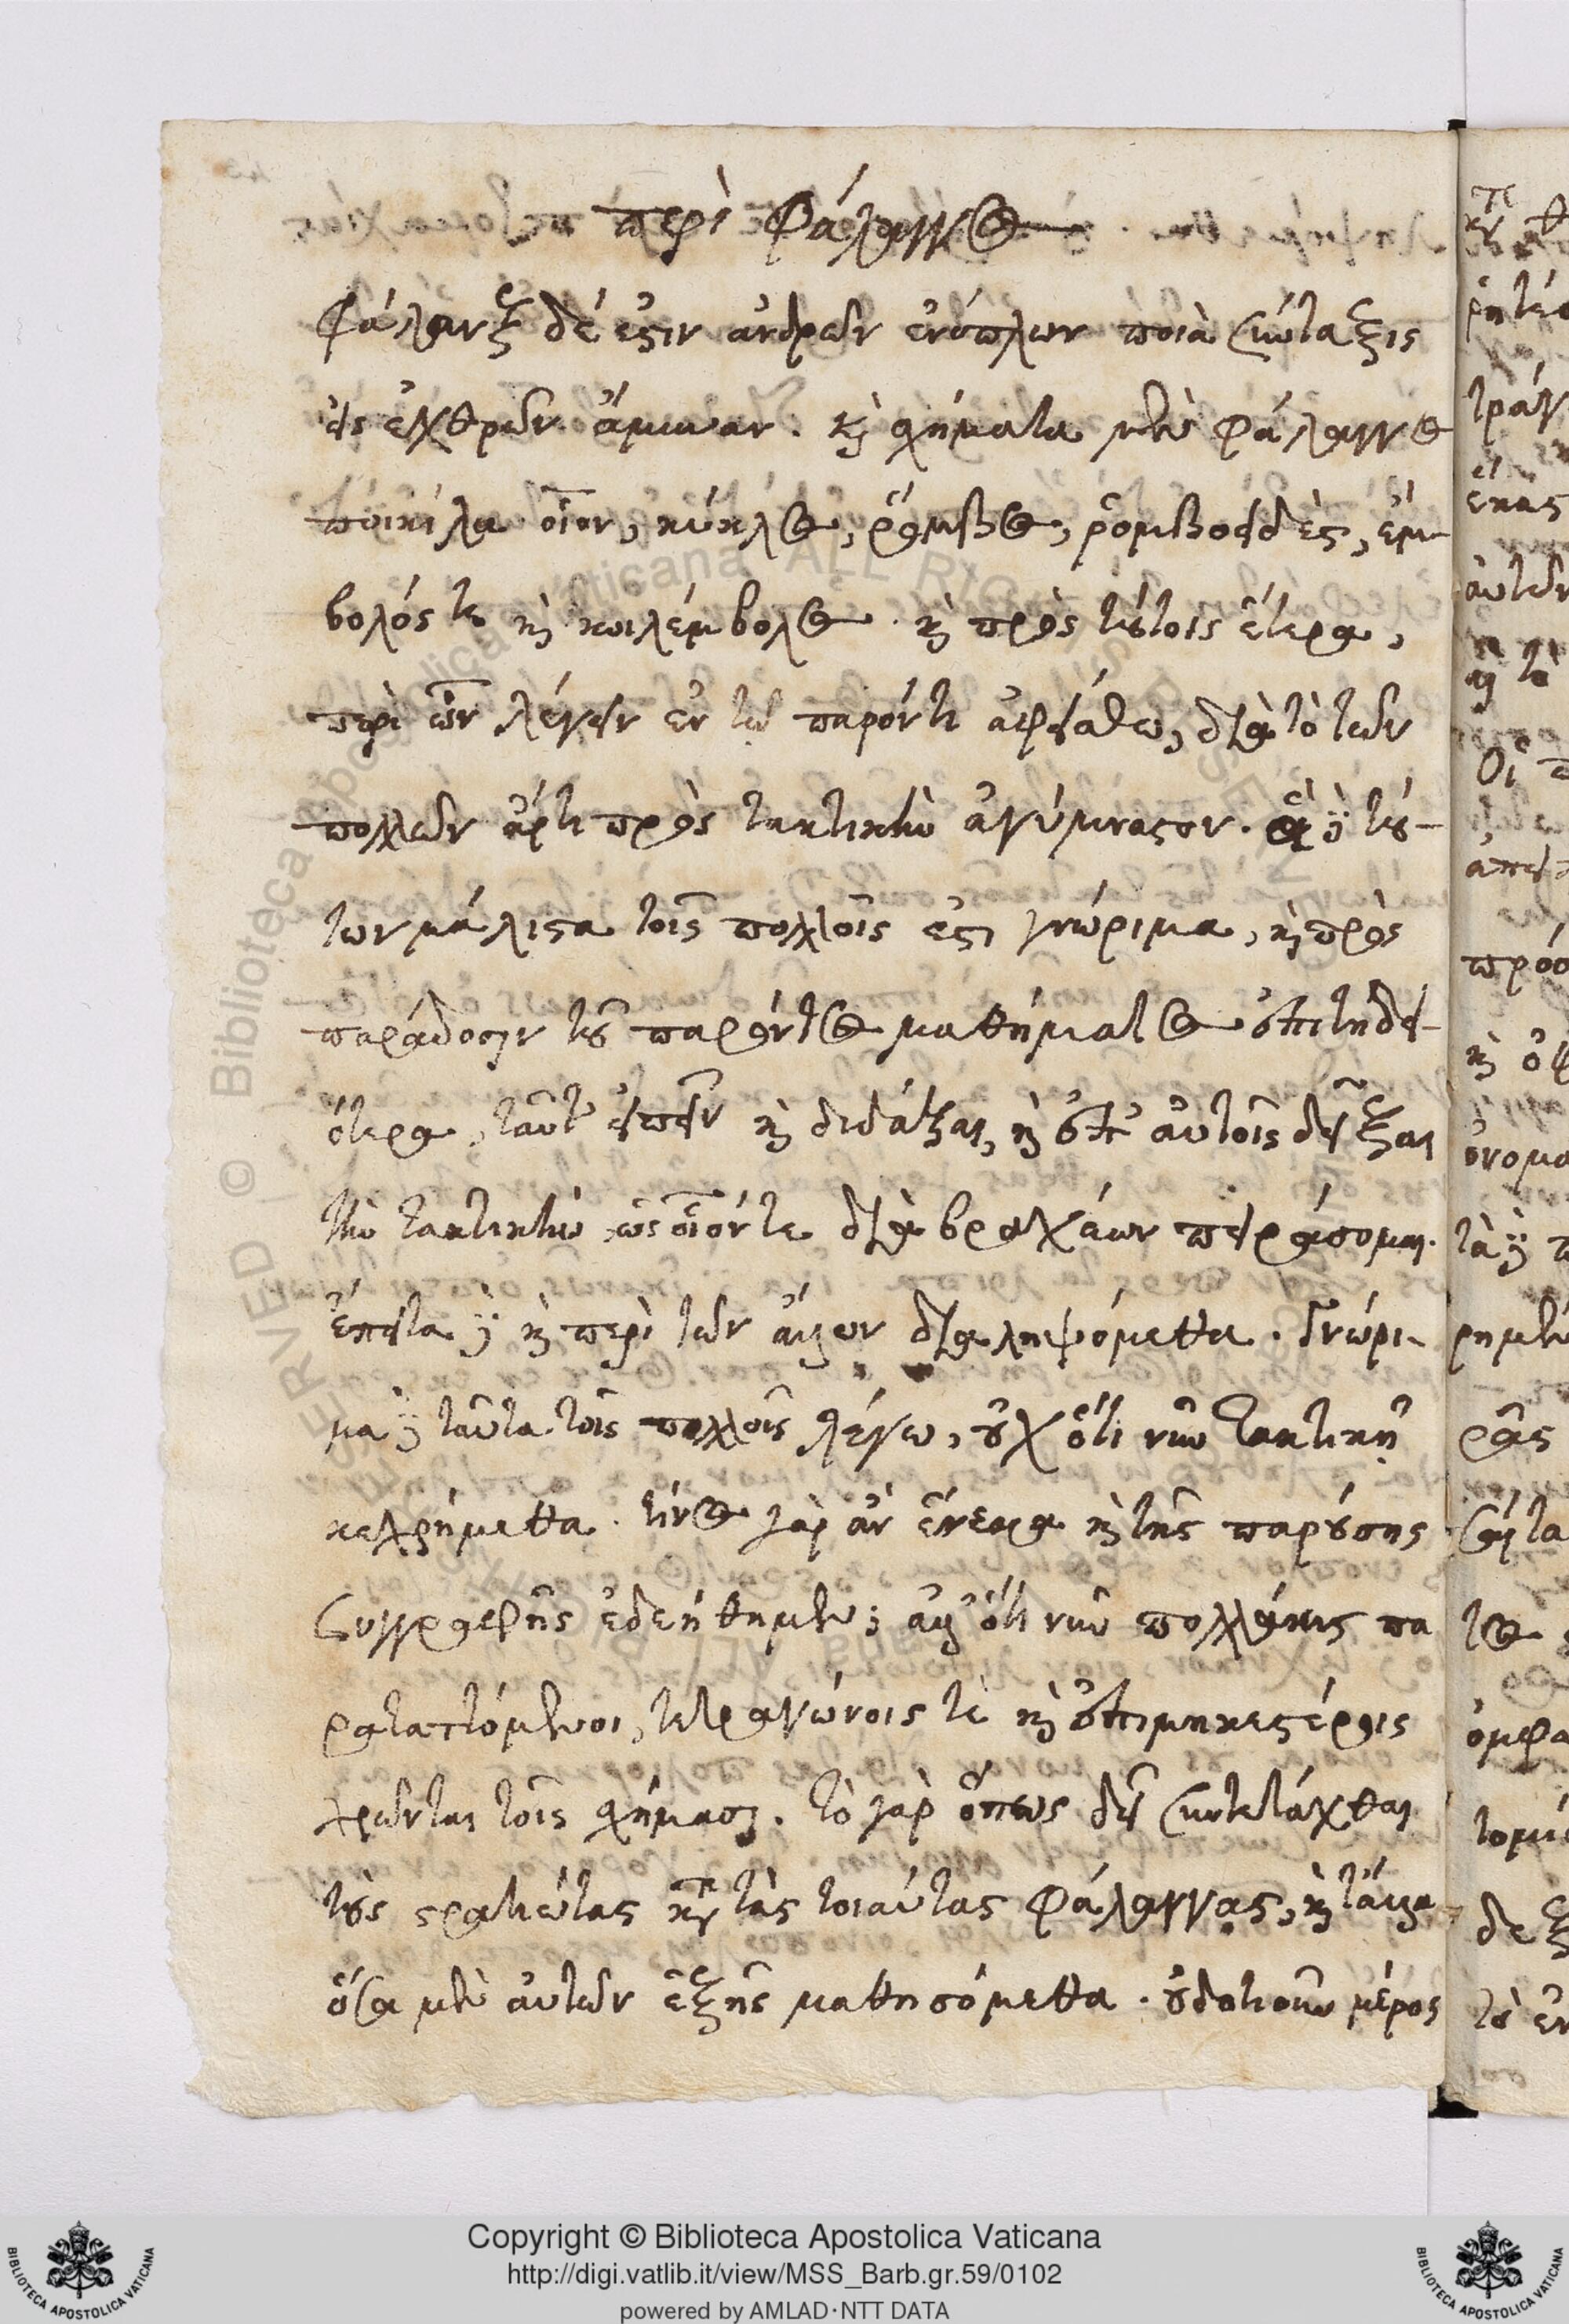 περὶ Φάλαγγος
Φάλαγξ δέ ἐστιν ἀνδρῶν ἐνόπλων ποιὰ σύνταξις
εἰς ἐχθρῶν ἄμυναν. καὶ σχήματα μὲν φάλαγγος
ποικίλα οἷον, κύκλος, ῥόμβος, ῥομβοειδὲς, ἔμ-
βολός τε καὶ κοιλέμβολος. καὶ πρὸς τούτοις ἕτερα,
περὶ ὧν λέγειν ἐν τῷ παρόντι ἀφείσθω, διὰ τὸ τῶν
πολλῶν ἄρτι πρὸς τακτικὴν ἀγύμναστον. ἃ δὲ τού-
των μάλιστα τοῖς πολλοῖς ἐστι γνώριμα, καὶ πρὸς
παράδοσιν τοῦ παρόντος μαθήματος ἐπιτηδει-
ότερα, ταῦτ' εἰπεῖν καὶ διδάξαι, καὶ ἐπ' αὐτοῖς δεῖξαι
τὴν τακτικὴν ὡς οἷόν τε διὰ βραχέων πειράσομαι.
ἔπειτα δὲ καὶ περὶ τῶν ἄλλων διαληψόμεθα. Γνώρι-
μα δὲ ταῦτα τοῖς πολλοῖς λέγω, οὐχ ὅτι νῦν τακτικῇ
κεχρήμεθα. τίνος γὰρ ἂν ἕνεκα καὶ τῆς παρούσης
συγγραφῆς ἐδεήθημεν; ἀλλ' ὅτι νῦν πολλάκις πα
ραταττόμενοι, τετραγώνοις τὲ καὶ ἐπιμηκεστέροις
χρῶνται τοῖς σχήμασι. τὸ γὰρ ὅπως δεῖ συντετάχθαι
τοὺς στρατιώτας κατὰ τὰς τοιαύτας φάλαγγας, καὶ τἄλλα
ὅσα μὲν αὐτῶν ἑξῆς μαθησόμεθα. οὐδοτιοῦν μέρος
Copyright © Biblioteca Apostolica Vaticana
http://digi.vatlib.it/view/MSS_Barb.gr.59/0102
powered by AMLAD·NTT DATA